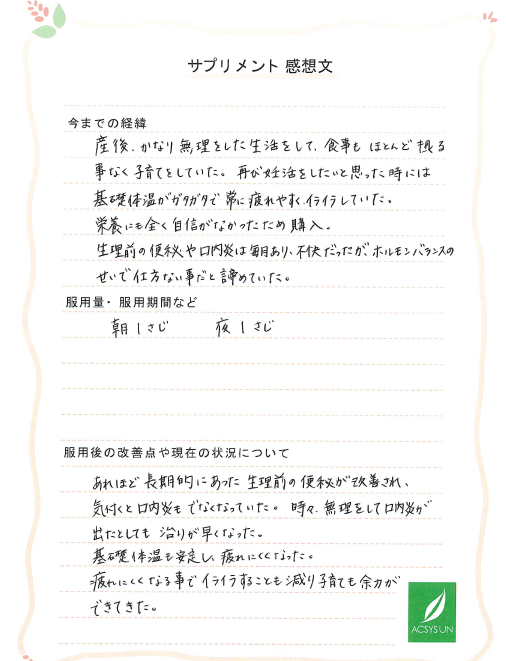 サプリメント 感想文
今までの経緯
産後、かなり無理をした生活をして、食事も ほとんど 摂る
事なく子育てをしていた。再び妊活をしたいと思った時には
基礎体温がガタガタで常に疲れやすくイライラしていた。
栄養にも全く自信がなかったため購入。
生理前の便秘や口内炎は毎月あり、不快だったが、ホルモンバランスの
せいで仕方ない事だと諦めていた。
服用量・服用期間など
朝1さじ 夜1さじ
服用後の改善点や現在の状況について
あれほど長期的にあった生理前の便秘が改善され、
気付くと口内炎もでなくなっていた。時々、無理をして口内炎が
出たとしても 治りが早くなった。
基礎体温も安定し、疲れにくくなった。
疲れにくくなる事でイライラすることも減り子育ても余力が
できてきた。
ACSYSUN